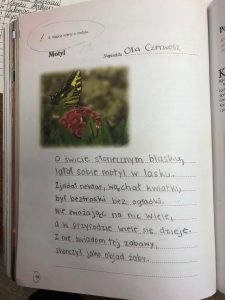 5. Napisz wiersz o motylu.
Motyl
Napisała: Ola Czerwosz
O świcie słonecznym blasku,
latał sobie motyl w lasku.
Zjadał nektar, wąchał kwiatki,
był beztroski bez ogładki.
Nie zważając na nic wiele,
a w przyrodzie wiele się dzieje.
I nie świadom tej zabawy,
skończył jako obiad żaby.